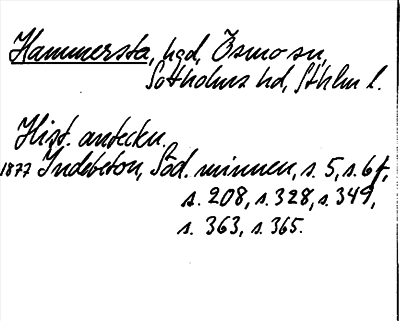 Hammersta, hgd, Ösmo sn,
Sotholms hd, Sthlm l.
Hist. anteckn.
1877 Indebetou, Söd. minnen, s. 5, s. 6 f,
s. 208, s. 328, s. 349,
s. 363, s. 365.